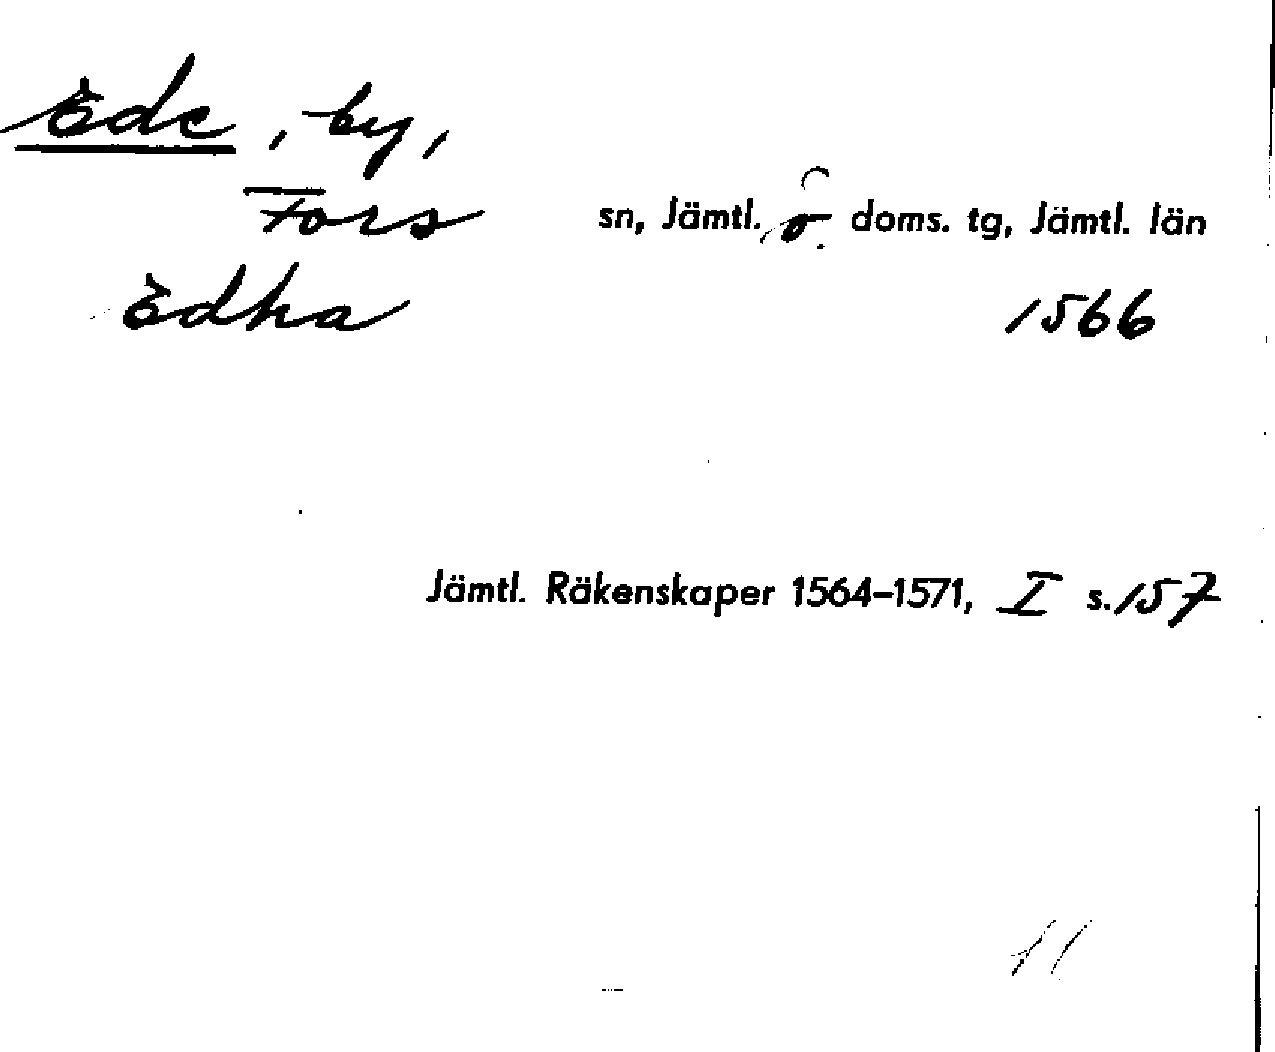 Ede, by,
Fors sn, Jämtl. ö. doms. tg, Jämtl. län
Edha 1566
Jämtl. Räkenskaper 1564–1571, I s. 157